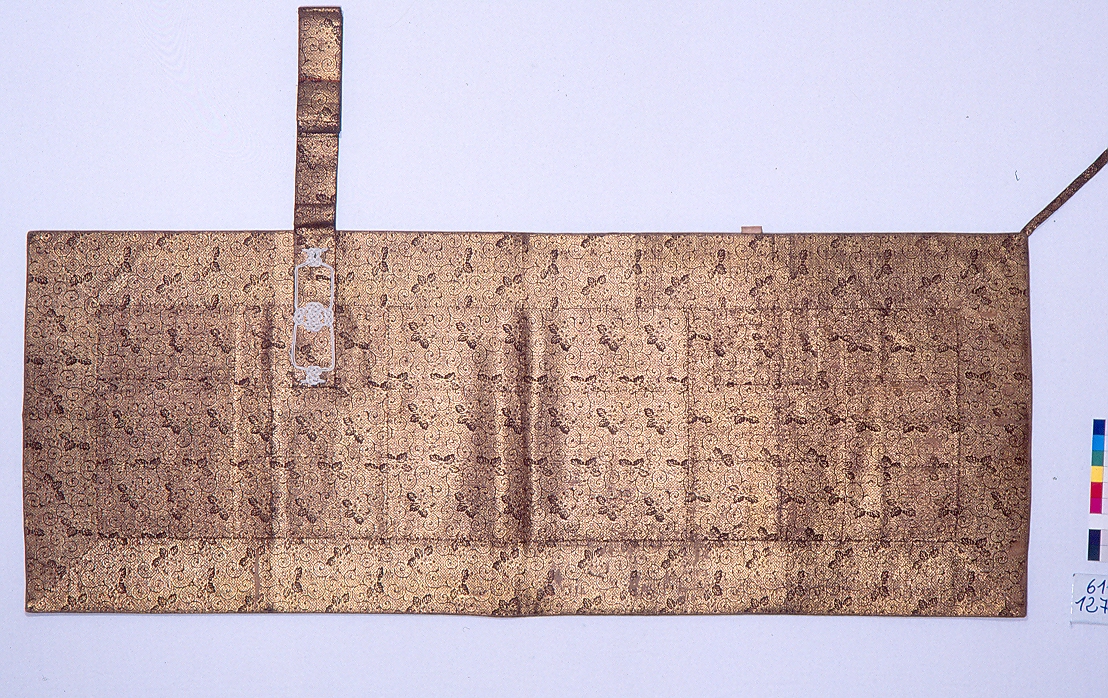 61
127